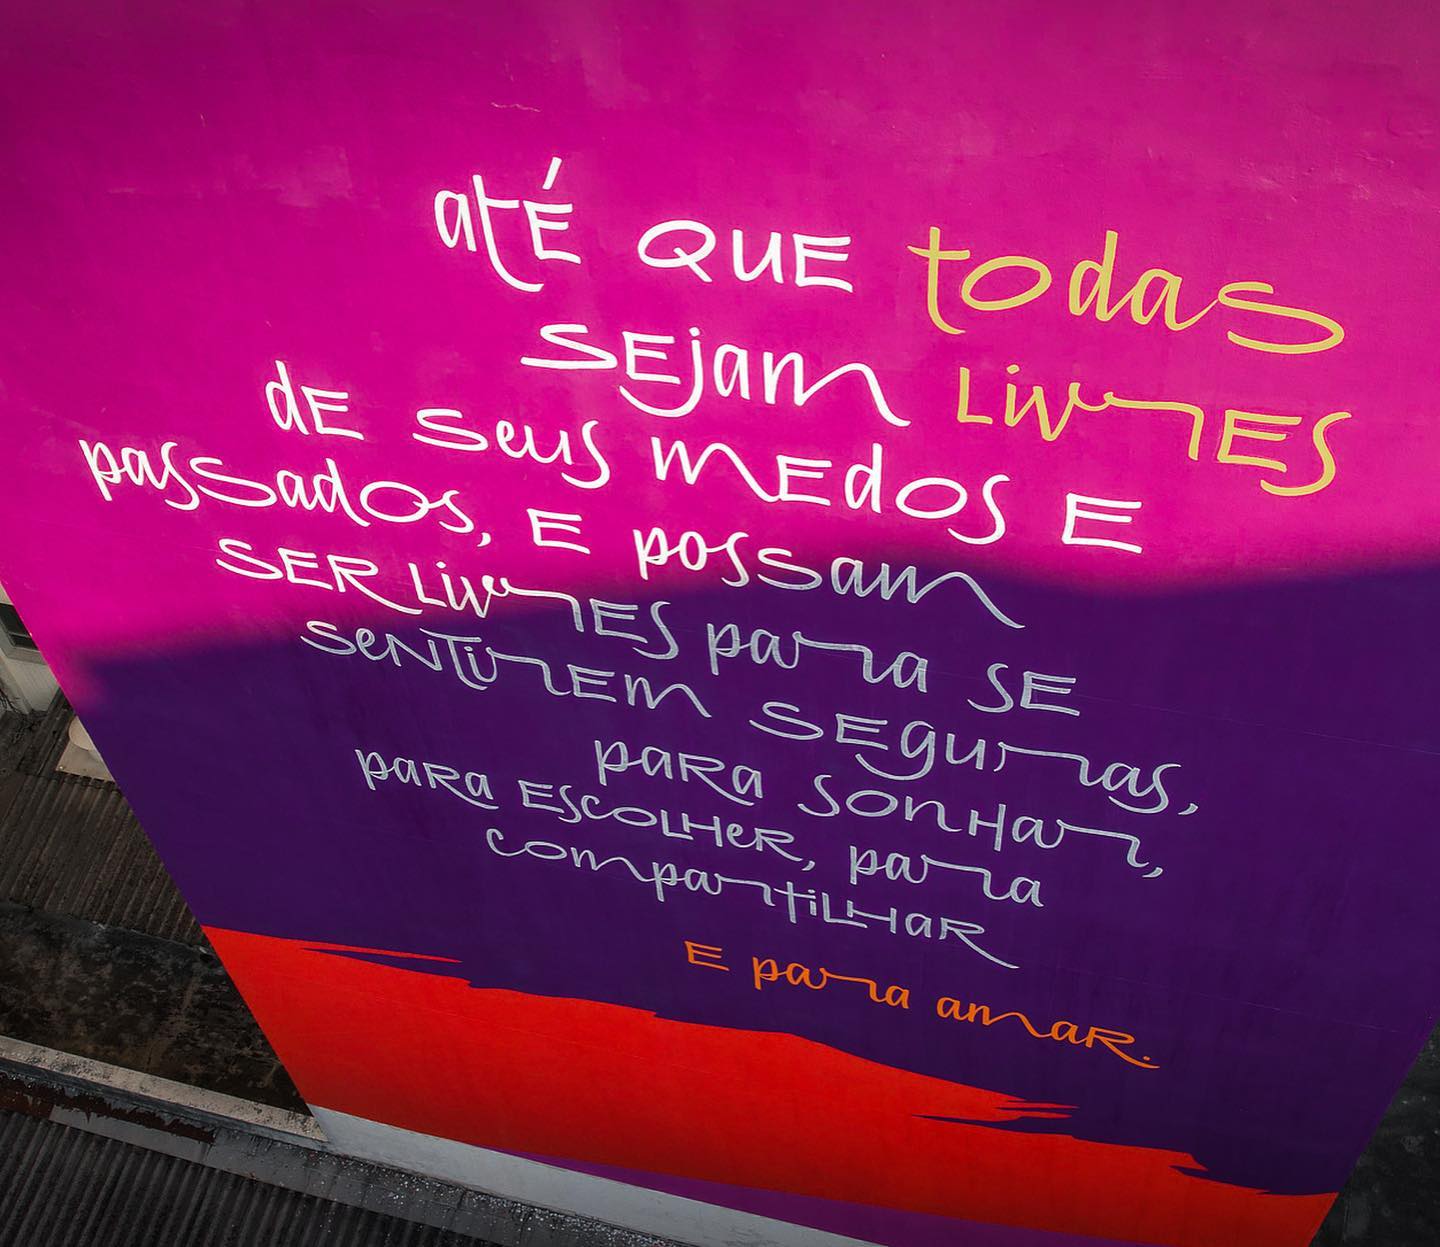 até que todas
sejam livres
de seus medos e
passados, e possam
ser livres para se
sentirem seguras,
para sonhar,
para escolher, para
compartilhar
e para amar.